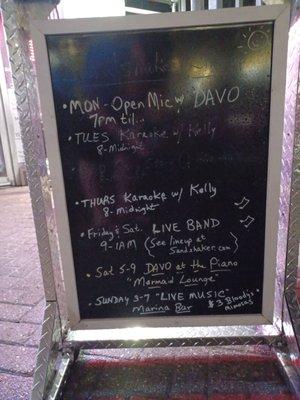 • MON - Open Mic w/ DAVO
7pm til...
• TUES Karaoke w/ Kelly
8-Midnight
• THURS Karaoke w/ Kelly
8-Midnight
• Friday's Sat. LIVE BAND
9-1AM (See lineup at
Sandshaker.com)
• Sat 5-9 DAVO at the Piano
"Mermaid Lounge"
• SUNDAY 3-7 "LIVE MUSIC"
Marina Bar $3 Bloody's
mimosas